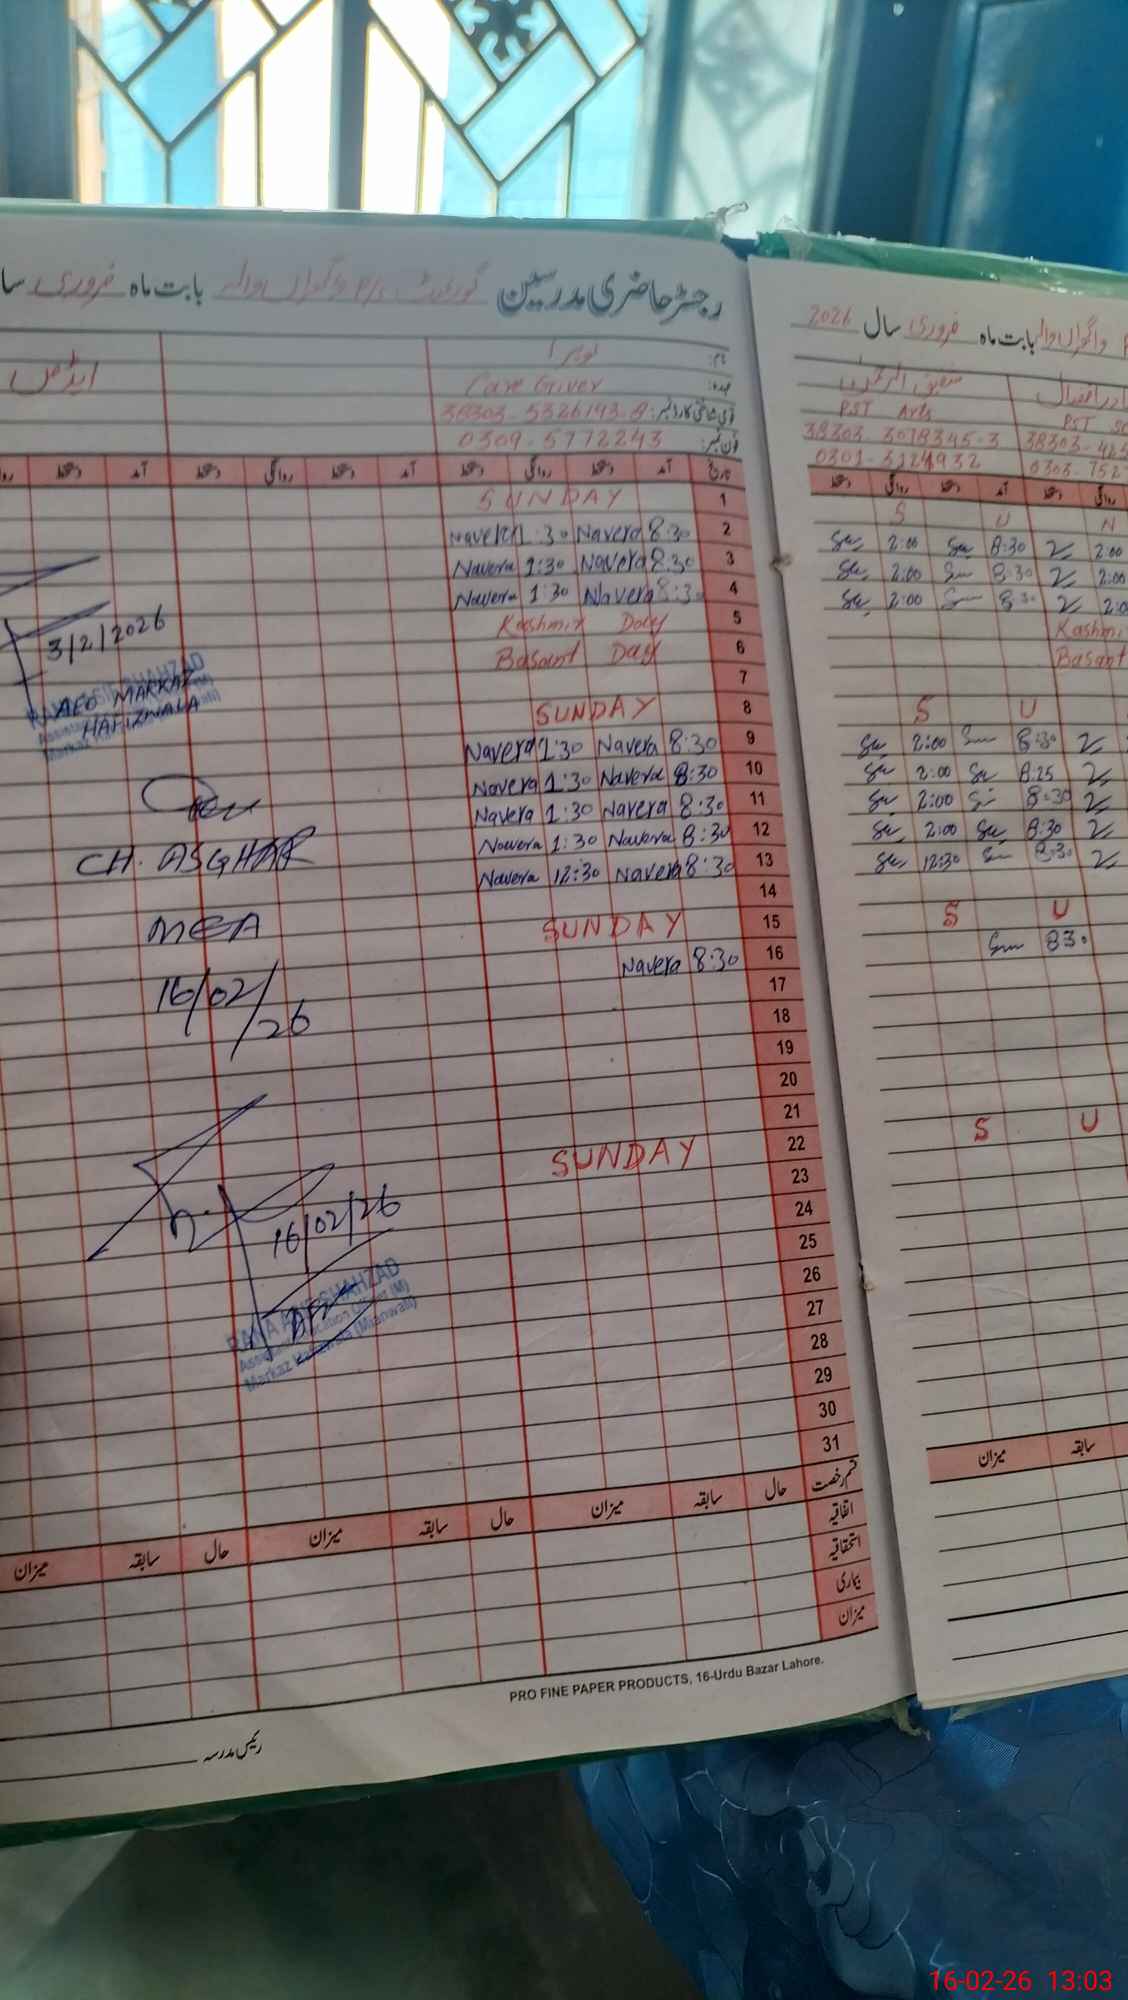 رجسٹر حاضری مدرسین گورنمنٹ P/S واگواں والہ بابت ماہ فروری سا
نام: نویرا
عہدہ: Care Giver
قومی شناختی کارڈ نمبر: 38303-5326143-8
فون نمبر: 0309-5772243
تاریخ آمد دستخط روانگی دستخط آمد دستخط روانگی دستخط آمد دستخط
1 SUNDAY
2 8:30 Navera 1:30 Navera
3 8:30 Navera 1:30 Navera
4 8:30 Navera 1:30 Navera
5 Kashmir Day
6 Basant Day
7
8 SUNDAY
9 8:30 Navera 1:30 Navera
10 8:30 Navera 1:30 Navera
11 8:30 Navera 1:30 Navera
12 8:30 Navera 1:30 Navera
13 8:30 Navera 12:30 Navera
14
15 SUNDAY
16 8:30 Navera
17
18
19
20
21
22 SUNDAY
23
24
25
26
27
28
29
30
31
3/2/2026
AEO MARKAZ
HAFIZWALA
CH. ASGHAR
MEA
16/02/26
16/02/26
RANA ASIF SHAHZAD
Assistant Education Officer (M)
Markaz Hafizwala (Mianwali)
قسم رخصت حال سابقہ میزان حال سابقہ میزان حال سابقہ میزان
اتفاقیہ
استحقاقیہ
بیماری
میزان
PRO FINE PAPER PRODUCTS, 16-Urdu Bazar Lahore.
رئیس مدرسہ
واگواں والہ بابت ماہ فروری سال 2026
شفیق الرحمن
PST Arts
PST SC
38303-3078345-3
38303-425
0301-5124932
0303-752
روانگی دستخط آمد دستخط روانگی دستخط
N U S
2:00 8:30 2:00
2:00 8:30 2:00
2:00 8:30 2:00
Kashmi
Basant
U S
8:30 2:00
8:25 2:00
8:30 2:00
8:30 2:00
8:30 12:30
U S
8:30
U S
سابقہ میزان
16-02-26 13:03